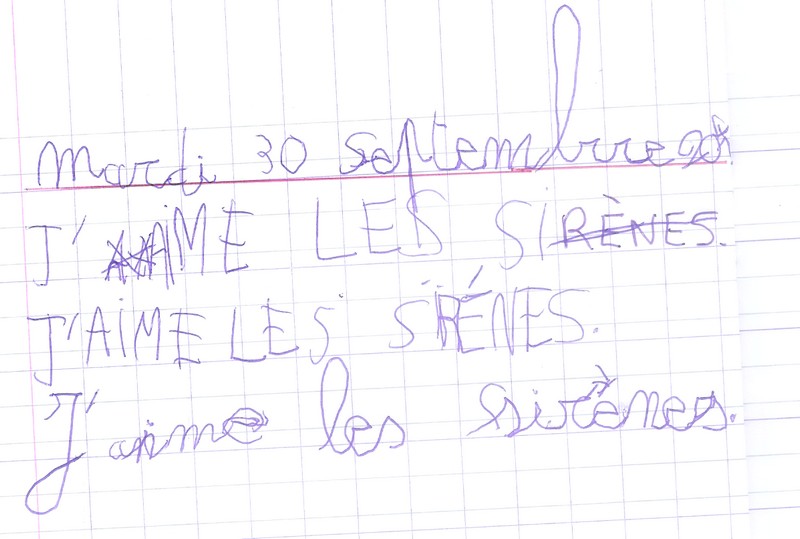 mardi 30 septembre
J'AIME LES SIRÈNES.
J'AIME LES SIRÉNES.
J'aime les sirènes.